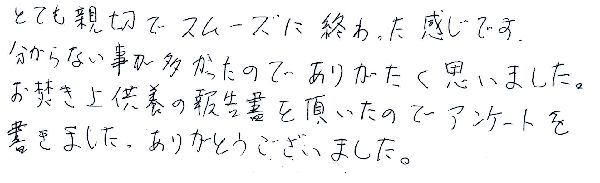 とても親切でスムーズに終わった感じです。
分からない事が多かったのでありがたく思いました。
お焚き上供養の報告書を頂いたのでアンケートを
書きました。ありがとうございました。